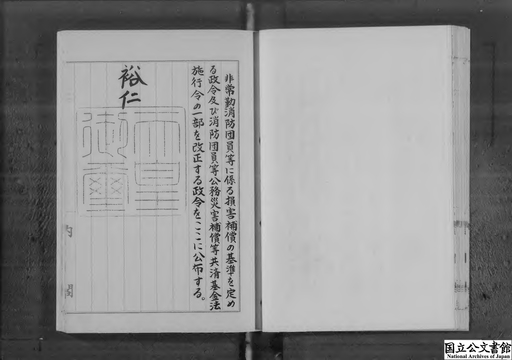 非常勤消防団員等に係る損害補償の基準を定め
る政令及び消防団員等公務災害補償等共済基金法
施行令の一部を改正する政令をここに公布する。
裕仁
天皇
御璽
内
閣
国立公文書館
National Archives of Japan